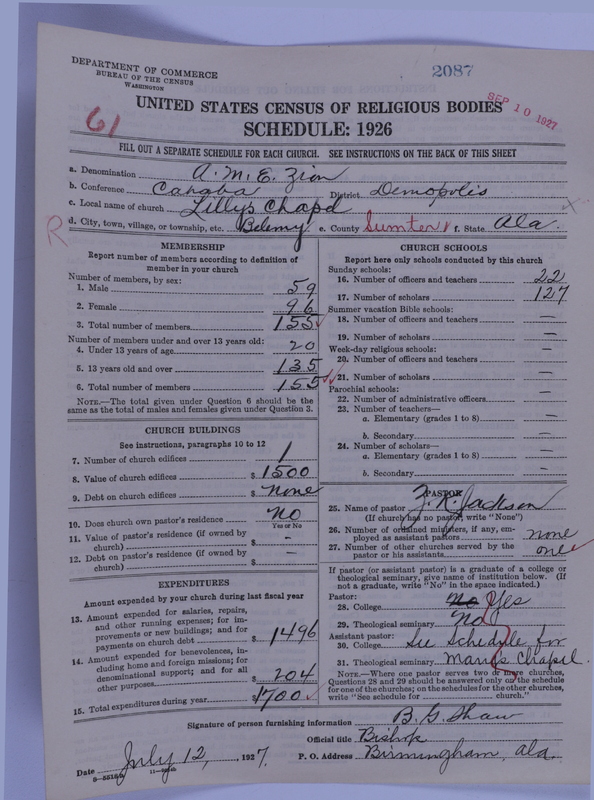 DEPARTMENT OF COMMERCE
BUREAU OF THE CENSUS
WASHINGTON
2087
SEP 10 1927
61
UNITED STATES CENSUS OF RELIGIOUS BODIES
SCHEDULE: 1926
FILL OUT A SEPARATE SCHEDULE FOR EACH CHURCH. SEE INSTRUCTIONS ON THE BACK OF THIS SHEET
a. Denomination A. M. E. Zion
b. Conference Cahaba District Demopolis
c. Local name of church Lillys Chapel
d. City, town, village, or township, etc. Belemy e. County Sumter f. State Ala.
R
MEMBERSHIP
Report number of members according to definition of member in your church
Number of members, by sex:
1. Male 59
2. Female 96
3. Total number of members 155
Number of members under and over 13 years old:
4. Under 13 years of age 20
5. 13 years old and over 135
6. Total number of members 155
NOTE.—The total given under Question 6 should be the same as the total of males and females given under Question 3.
CHURCH BUILDINGS
See instructions, paragraphs 10 to 12
7. Number of church edifices 1
8. Value of church edifices $ 1500
9. Debt on church edifices $ none
10. Does church own pastor's residence No
Yes or No
11. Value of pastor's residence (if owned by church) $ —
12. Debt on pastor's residence (if owned by church) $ —
EXPENDITURES
Amount expended by your church during last fiscal year
13. Amount expended for salaries, repairs, and other running expenses; for improvements or new buildings; and for payments on church debt $ 1496
14. Amount expended for benevolences, including home and foreign missions; for denominational support; and for all other purposes $ 204
15. Total expenditures during year $ 1700
CHURCH SCHOOLS
Report here only schools conducted by this church
Sunday schools:
16. Number of officers and teachers 22
17. Number of scholars 127
Summer vacation Bible schools:
18. Number of officers and teachers —
19. Number of scholars —
Week-day religious schools:
20. Number of officers and teachers —
21. Number of scholars —
Parochial schools:
22. Number of administrative officers —
23. Number of teachers—
a. Elementary (grades 1 to 8) —
b. Secondary —
24. Number of scholars—
a. Elementary (grades 1 to 8) —
b. Secondary —
PASTOR
25. Name of pastor Jackson
(If church has no pastor, write "None")
26. Number of ordained ministers, if any, employed as assistant pastors none
27. Number of other churches served by the pastor or his assistants one
If pastor (or assistant pastor) is a graduate of a college or theological seminary, give name of institution below. (If not a graduate, write "No" in the space indicated.)
Pastor:
28. College No Yes
29. Theological seminary No
Assistant pastor:
30. College See Schedule for
31. Theological seminary Chapel.
NOTE.—Where one pastor serves two or more churches, Questions 28 and 29 should be answered only on the schedule for one of the churches; on the schedules for the other churches, write "See schedule for church."
Signature of person furnishing information B. G. Shaw
Official title Bishop
Date July 12, 1927. P. O. Address Birmingham, Ala.